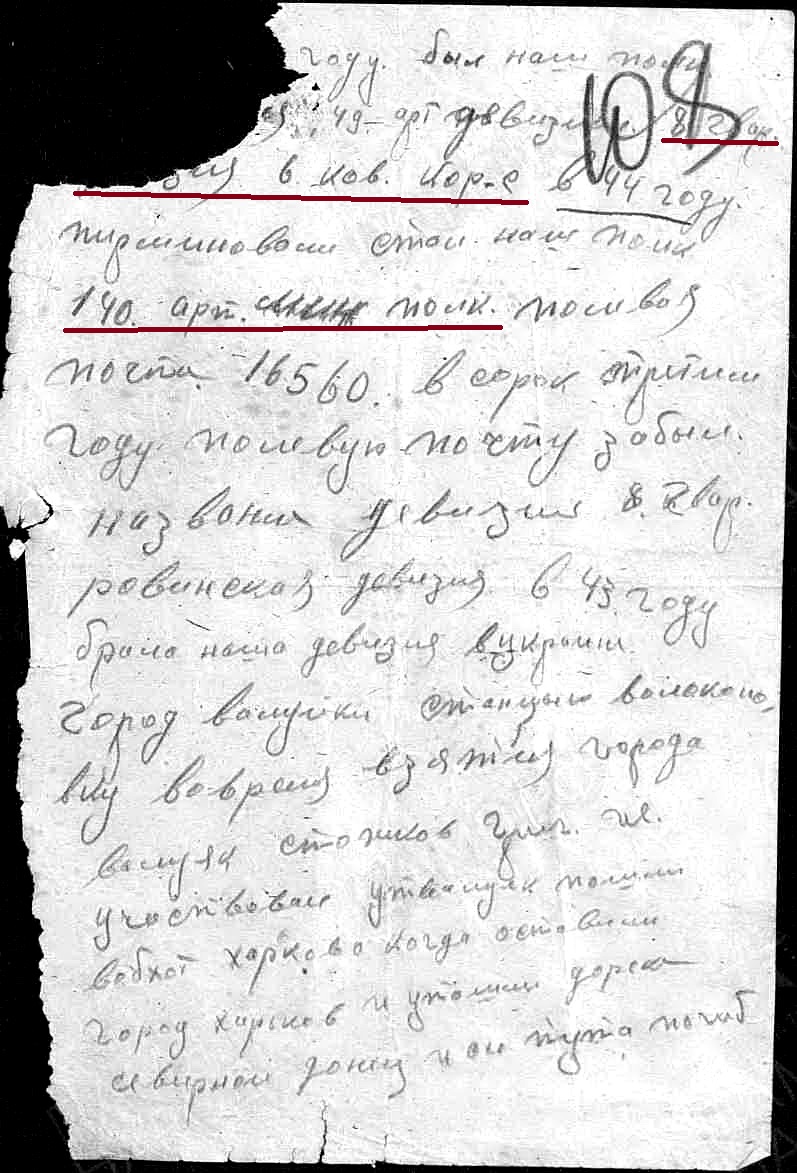 году. был наш полк
49 арт дивизион 8 гвар.
в. кав. кор-с в 44 году.
108
стал наш полк
140. арт. полк. полевая
почта 16560. в сорок третим
году полевую почту забыл.
названия девизия 8. гвар.
ровинская девизия в 43 году
брала наша девизия вукраини
город валуйки станцыю волоконо,
вку вовремя взятия города
валуяк Григ. ив.
участвовал пошли
вобхот харкова когда оставили
город харьков и
сиверной донец и он тута погиб